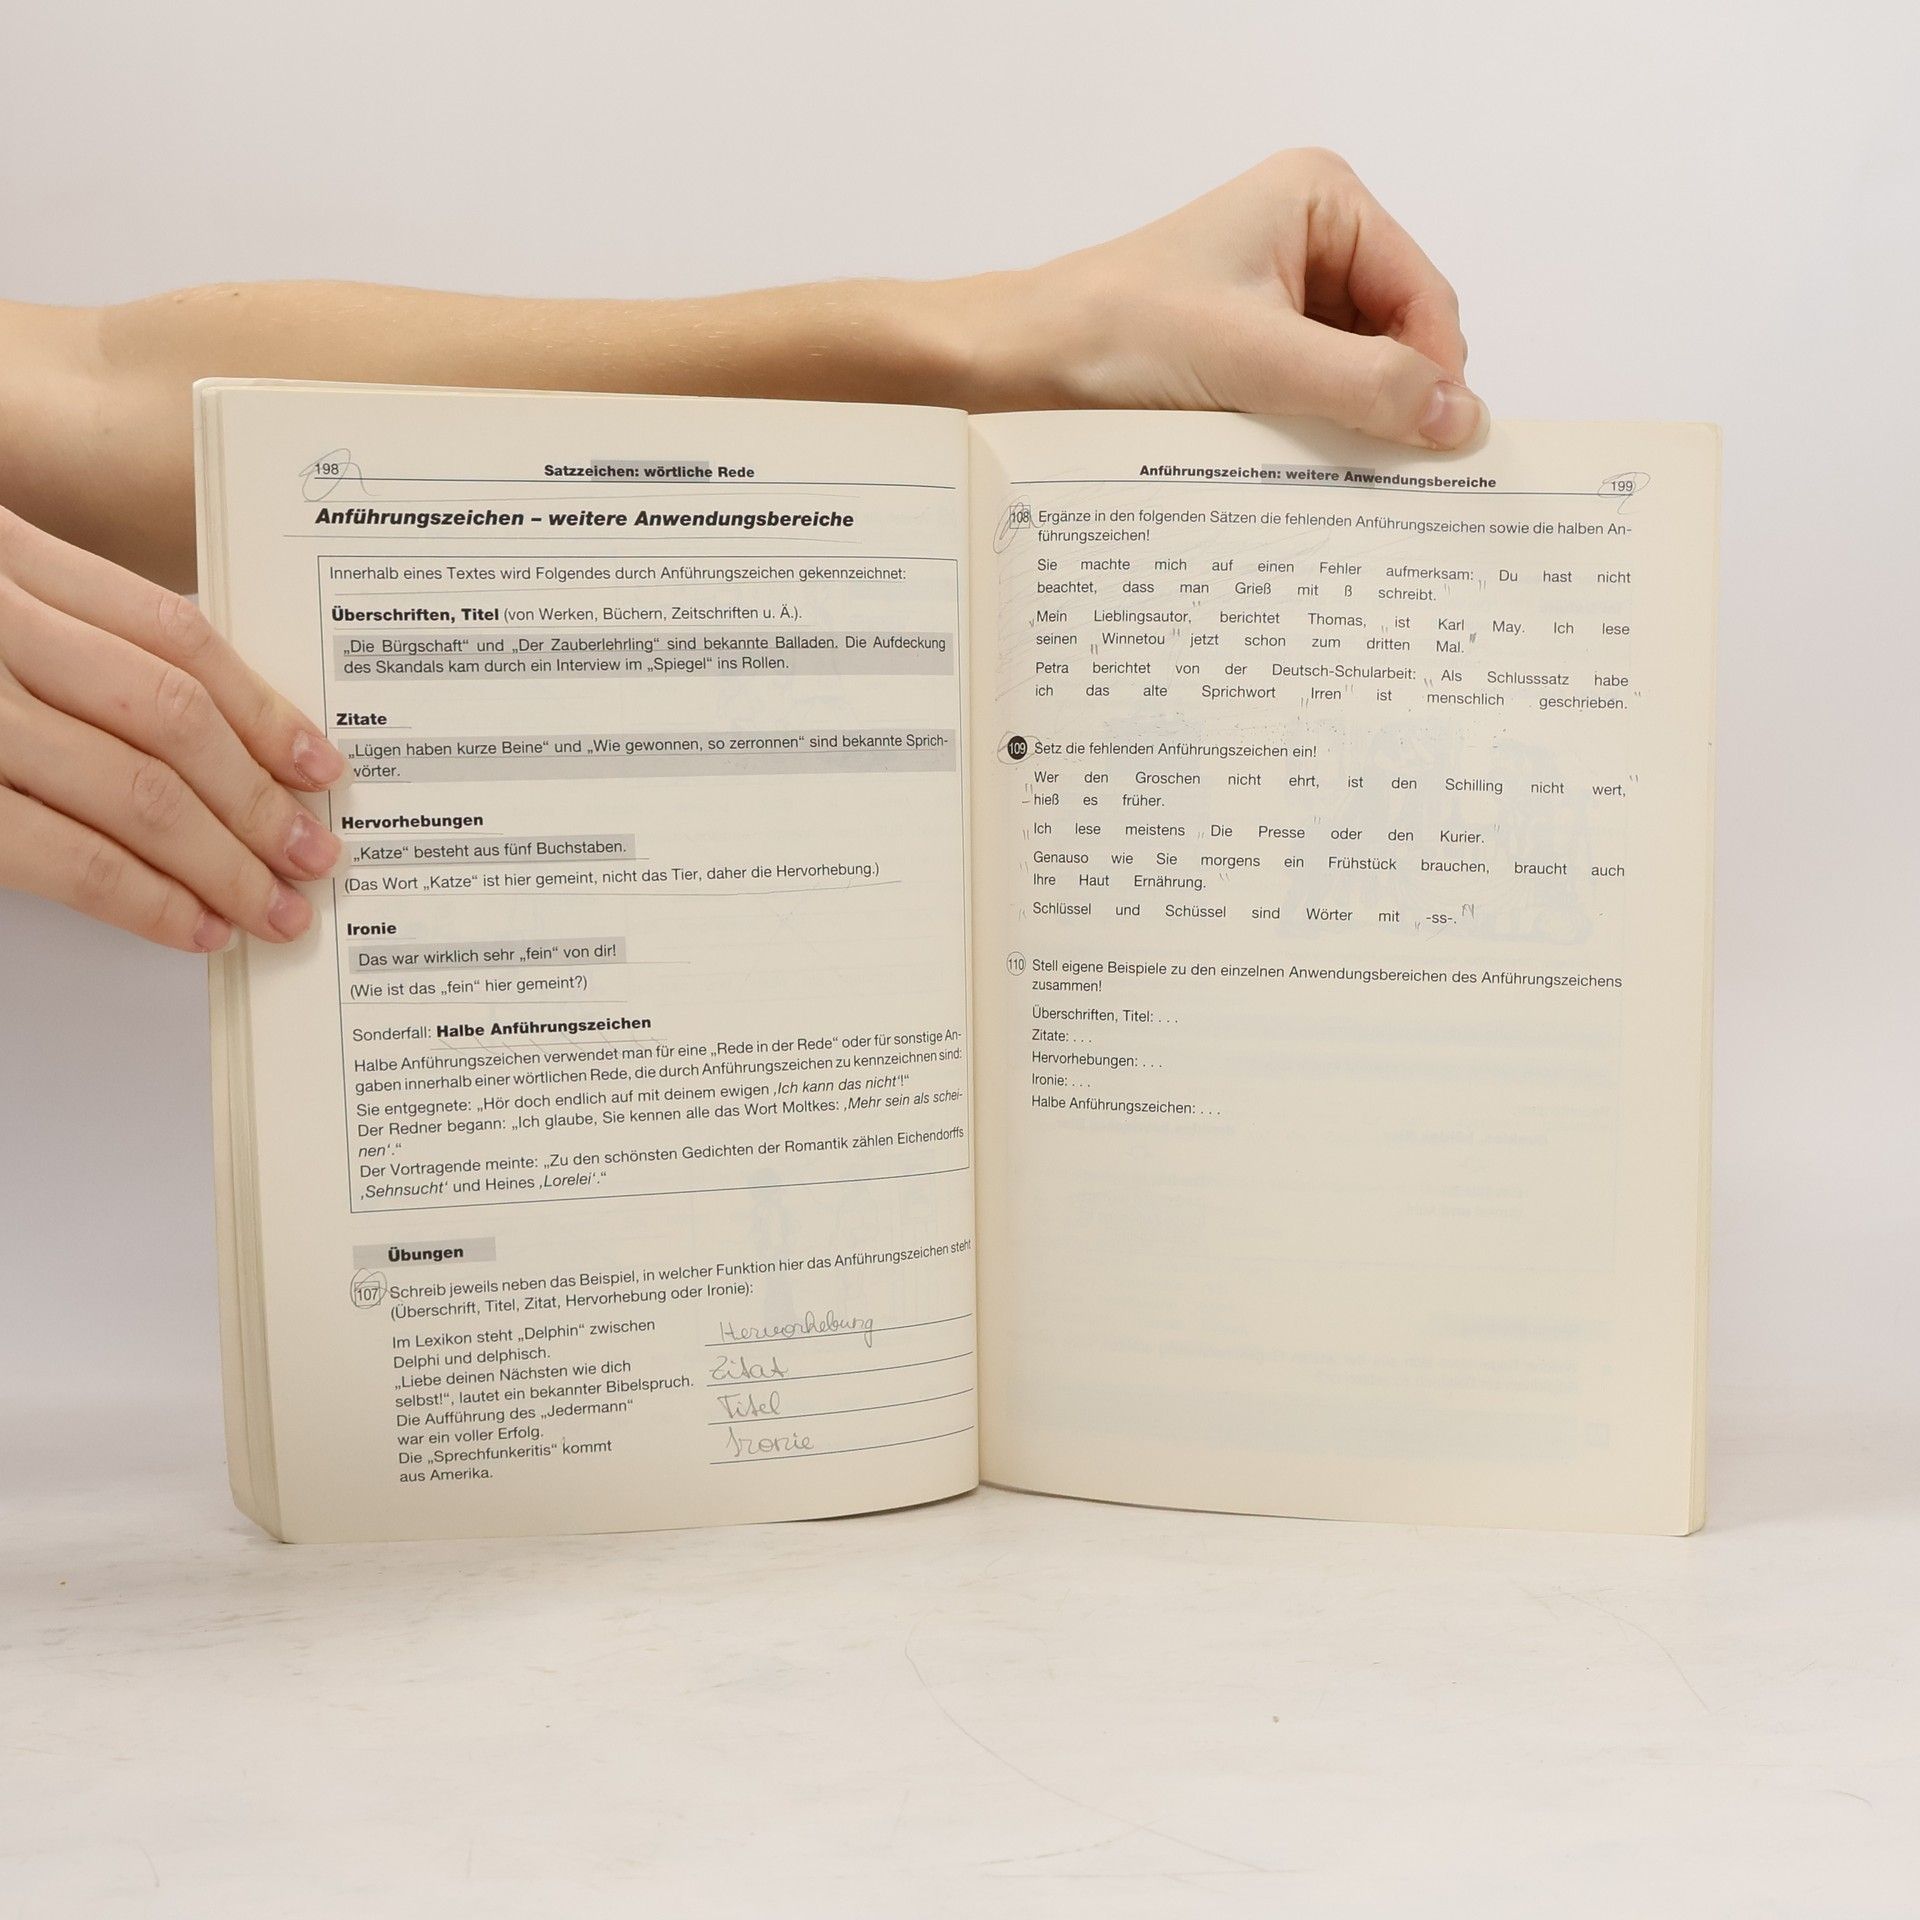 198
Satzzeichen: wörtliche Rede
Anführungszeichen – weitere Anwendungsbereiche
Innerhalb eines Textes wird Folgendes durch Anführungszeichen gekennzeichnet:
Überschriften, Titel (von Werken, Büchern, Zeitschriften u. Ä.).
„Die Bürgschaft“ und „Der Zauberlehrling“ sind bekannte Balladen. Die Aufdeckung
des Skandals kam durch ein Interview im „Spiegel“ ins Rollen.
Zitate
„Lügen haben kurze Beine“ und „Wie gewonnen, so zerronnen“ sind bekannte Sprich-
wörter.
Hervorhebungen
„Katze“ besteht aus fünf Buchstaben.
(Das Wort „Katze“ ist hier gemeint, nicht das Tier, daher die Hervorhebung.)
Ironie
Das war wirklich sehr „fein“ von dir!
(Wie ist das „fein“ hier gemeint?)
Sonderfall: Halbe Anführungszeichen
Halbe Anführungszeichen verwendet man für eine „Rede in der Rede“ oder für sonstige An-
gaben innerhalb einer wörtlichen Rede, die durch Anführungszeichen zu kennzeichnen sind:
Sie entgegnete: „Hör doch endlich auf mit deinem ewigen ‚Ich kann das nicht‘!“
Der Redner begann: „Ich glaube, Sie kennen alle das Wort Moltkes: ‚Mehr sein als schei-
nen‘.“
Der Vortragende meinte: „Zu den schönsten Gedichten der Romantik zählen Eichendorffs
‚Sehnsucht‘ und Heines ‚Lorelei‘.“
Übungen
107 Schreib jeweils neben das Beispiel, in welcher Funktion hier das Anführungszeichen steht
(Überschrift, Titel, Zitat, Hervorhebung oder Ironie):
Im Lexikon steht „Delphin“ zwischen
Delphi und delphisch. Hervorhebung
„Liebe deinen Nächsten wie dich
selbst!“, lautet ein bekannter Bibelspruch. Zitat
Die Aufführung des „Jedermann“
war ein voller Erfolg. Titel
Die „Sprechfunkeritis“ kommt
aus Amerika. Ironie
Anführungszeichen: weitere Anwendungsbereiche
199
108 Ergänze in den folgenden Sätzen die fehlenden Anführungszeichen sowie die halben An-
führungszeichen!
Sie machte mich auf einen Fehler aufmerksam: „ Du hast nicht
beachtet, dass man Grieß mit ß schreibt. “
„ Mein Lieblingsautor, “ berichtet Thomas, „ ist Karl May. Ich lese
seinen „ Winnetou “ jetzt schon zum dritten Mal. “
Petra berichtet von der Deutsch-Schularbeit: „ Als Schlusssatz habe
ich das alte Sprichwort „ Irren “ ist menschlich geschrieben. “
109 Setz die fehlenden Anführungszeichen ein!
„ Wer den Groschen nicht ehrt, ist den Schilling nicht wert, “
hieß es früher.
„ Ich lese meistens „ Die Presse “ oder den Kurier. “
„ Genauso wie Sie morgens ein Frühstück brauchen, braucht auch
Ihre Haut Ernährung. “
„ Schlüssel und Schüssel sind Wörter mit „ -ss-. “
110 Stell eigene Beispiele zu den einzelnen Anwendungsbereichen des Anführungszeichens
zusammen!
Überschriften, Titel: . . .
Zitate: . . .
Hervorhebungen: . . .
Ironie: . . .
Halbe Anführungszeichen: . . .